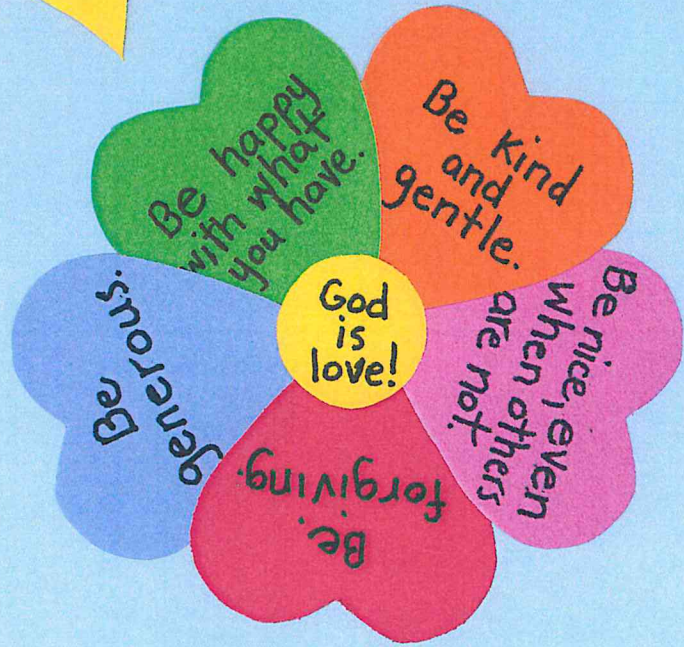 God
is
love!
Be happy
with what
you have.
Be kind
and
gentle.
Be nice, even
when others
are not.
Be
forgiving.
Be
generous.